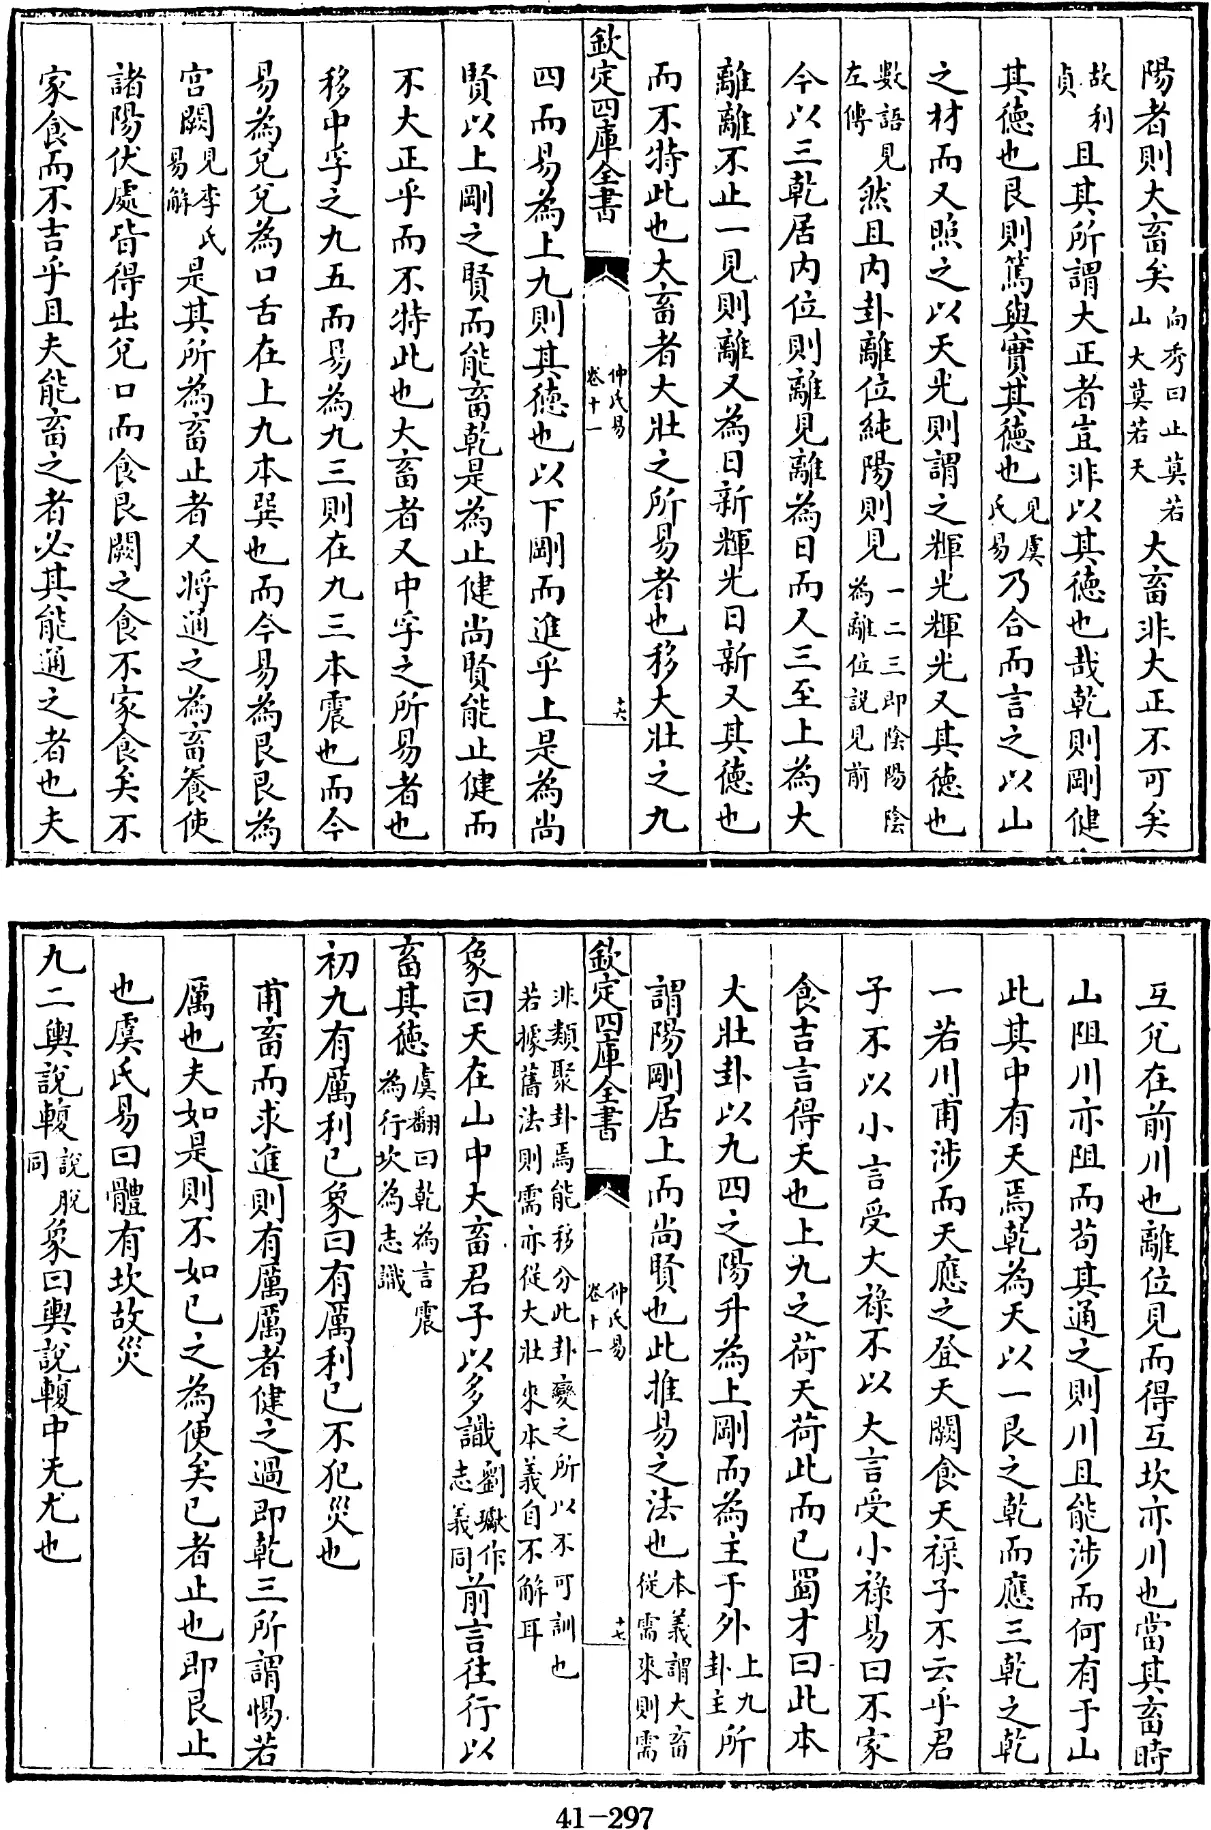 陽者則大畜矣向秀曰止莫若山大莫若天大畜非大正不可矣
故利貞且其所謂大正者豈非以其德也哉乾則剛健
其德也艮則篤與實其德也見虞氏易乃合而言之以山
之材而又照之以天光則謂之輝光輝光又其德也
數語見左傳然且内卦離位純陽則見一二三即陰陽陰為離位説見前
今以三乾居内位則離見離為日而又三至上為大
離離不止一見則離又為日新輝光日新又其德也
而不特此也大畜者大壯之所易者也移大壯之九
欽定四庫全書
仲氏易
卷十一
十六
四而易為上九則其德也以下剛而進乎上是為尚
賢以上剛之賢而能畜乾是為止健尚賢能止健而
不大正乎而不特此也大畜者又中孚之所易者也
移中孚之九五而易為九三則在九三本震也而今
易為兌兌為口舌在上九本巽也而今易為艮艮為
宫闕見李氏易解是其所為畜止者又將通之為畜養使
諸陽伏處皆得出兌口而食艮闕之食不家食矣不
家食而不吉乎且夫能畜之者必其能通之者也夫
互兌在前川也離位見而得互坎亦川也當其畜時
山阻川亦阻而苟其通之則川且能涉而何有于山
此其中有天焉乾為天以一艮之乾而應三乾之乾
一若川甫涉而天應之登天闕食天祿子不云乎君
子不以小言受大祿不以大言受小祿易曰不家
食吉言得天也上九之荷天荷此而已蜀才曰此本
大壯卦以九四之陽升為上剛而為主于外上九卦主所
謂陽剛居上而尚賢也此推易之法也本義謂大畜從需來則需
欽定四庫全書
仲氏易
卷十一
十七
非類聚卦焉能移分此卦變之所以不可訓也若據舊法則需亦從大壯來本義自不解耳
象曰天在山中大畜君子以多識劉瓛作志義同前言往行以
畜其德虞翻曰乾為言震為行坎為志識
初九有厲利已象曰有厲利已不犯災也
甫畜而求進則有厲厲者健之過即乾三所謂惕若
厲也夫如是則不如已之為便矣已者止也即艮止
也虞氏易曰體有坎故災
九二輿説輹説脫同象曰輿説輹中无尤也
41-297